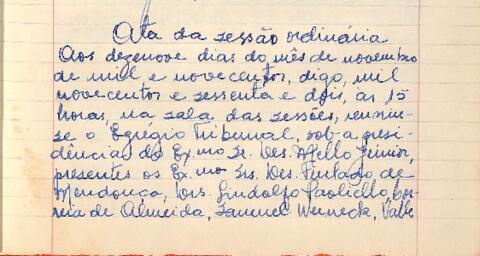 Ata da sessão ordinária
Aos dezenove dias do mês de novembro
de mil e novecentos, digo, mil
novecentos e sessenta e dois, às 15
horas, na sala das sessões, reuniu-
se o Egregio Tribunal, sob a presi-
dência do Ex.mo Sr. Des. Mello Júnior,
presentes os Ex.mo Srs. Des. Furtado de
Mendonça, Drs. Lindolfo Paoliello, Cor-
reia de Almeida, Samuel Werneck, Valle